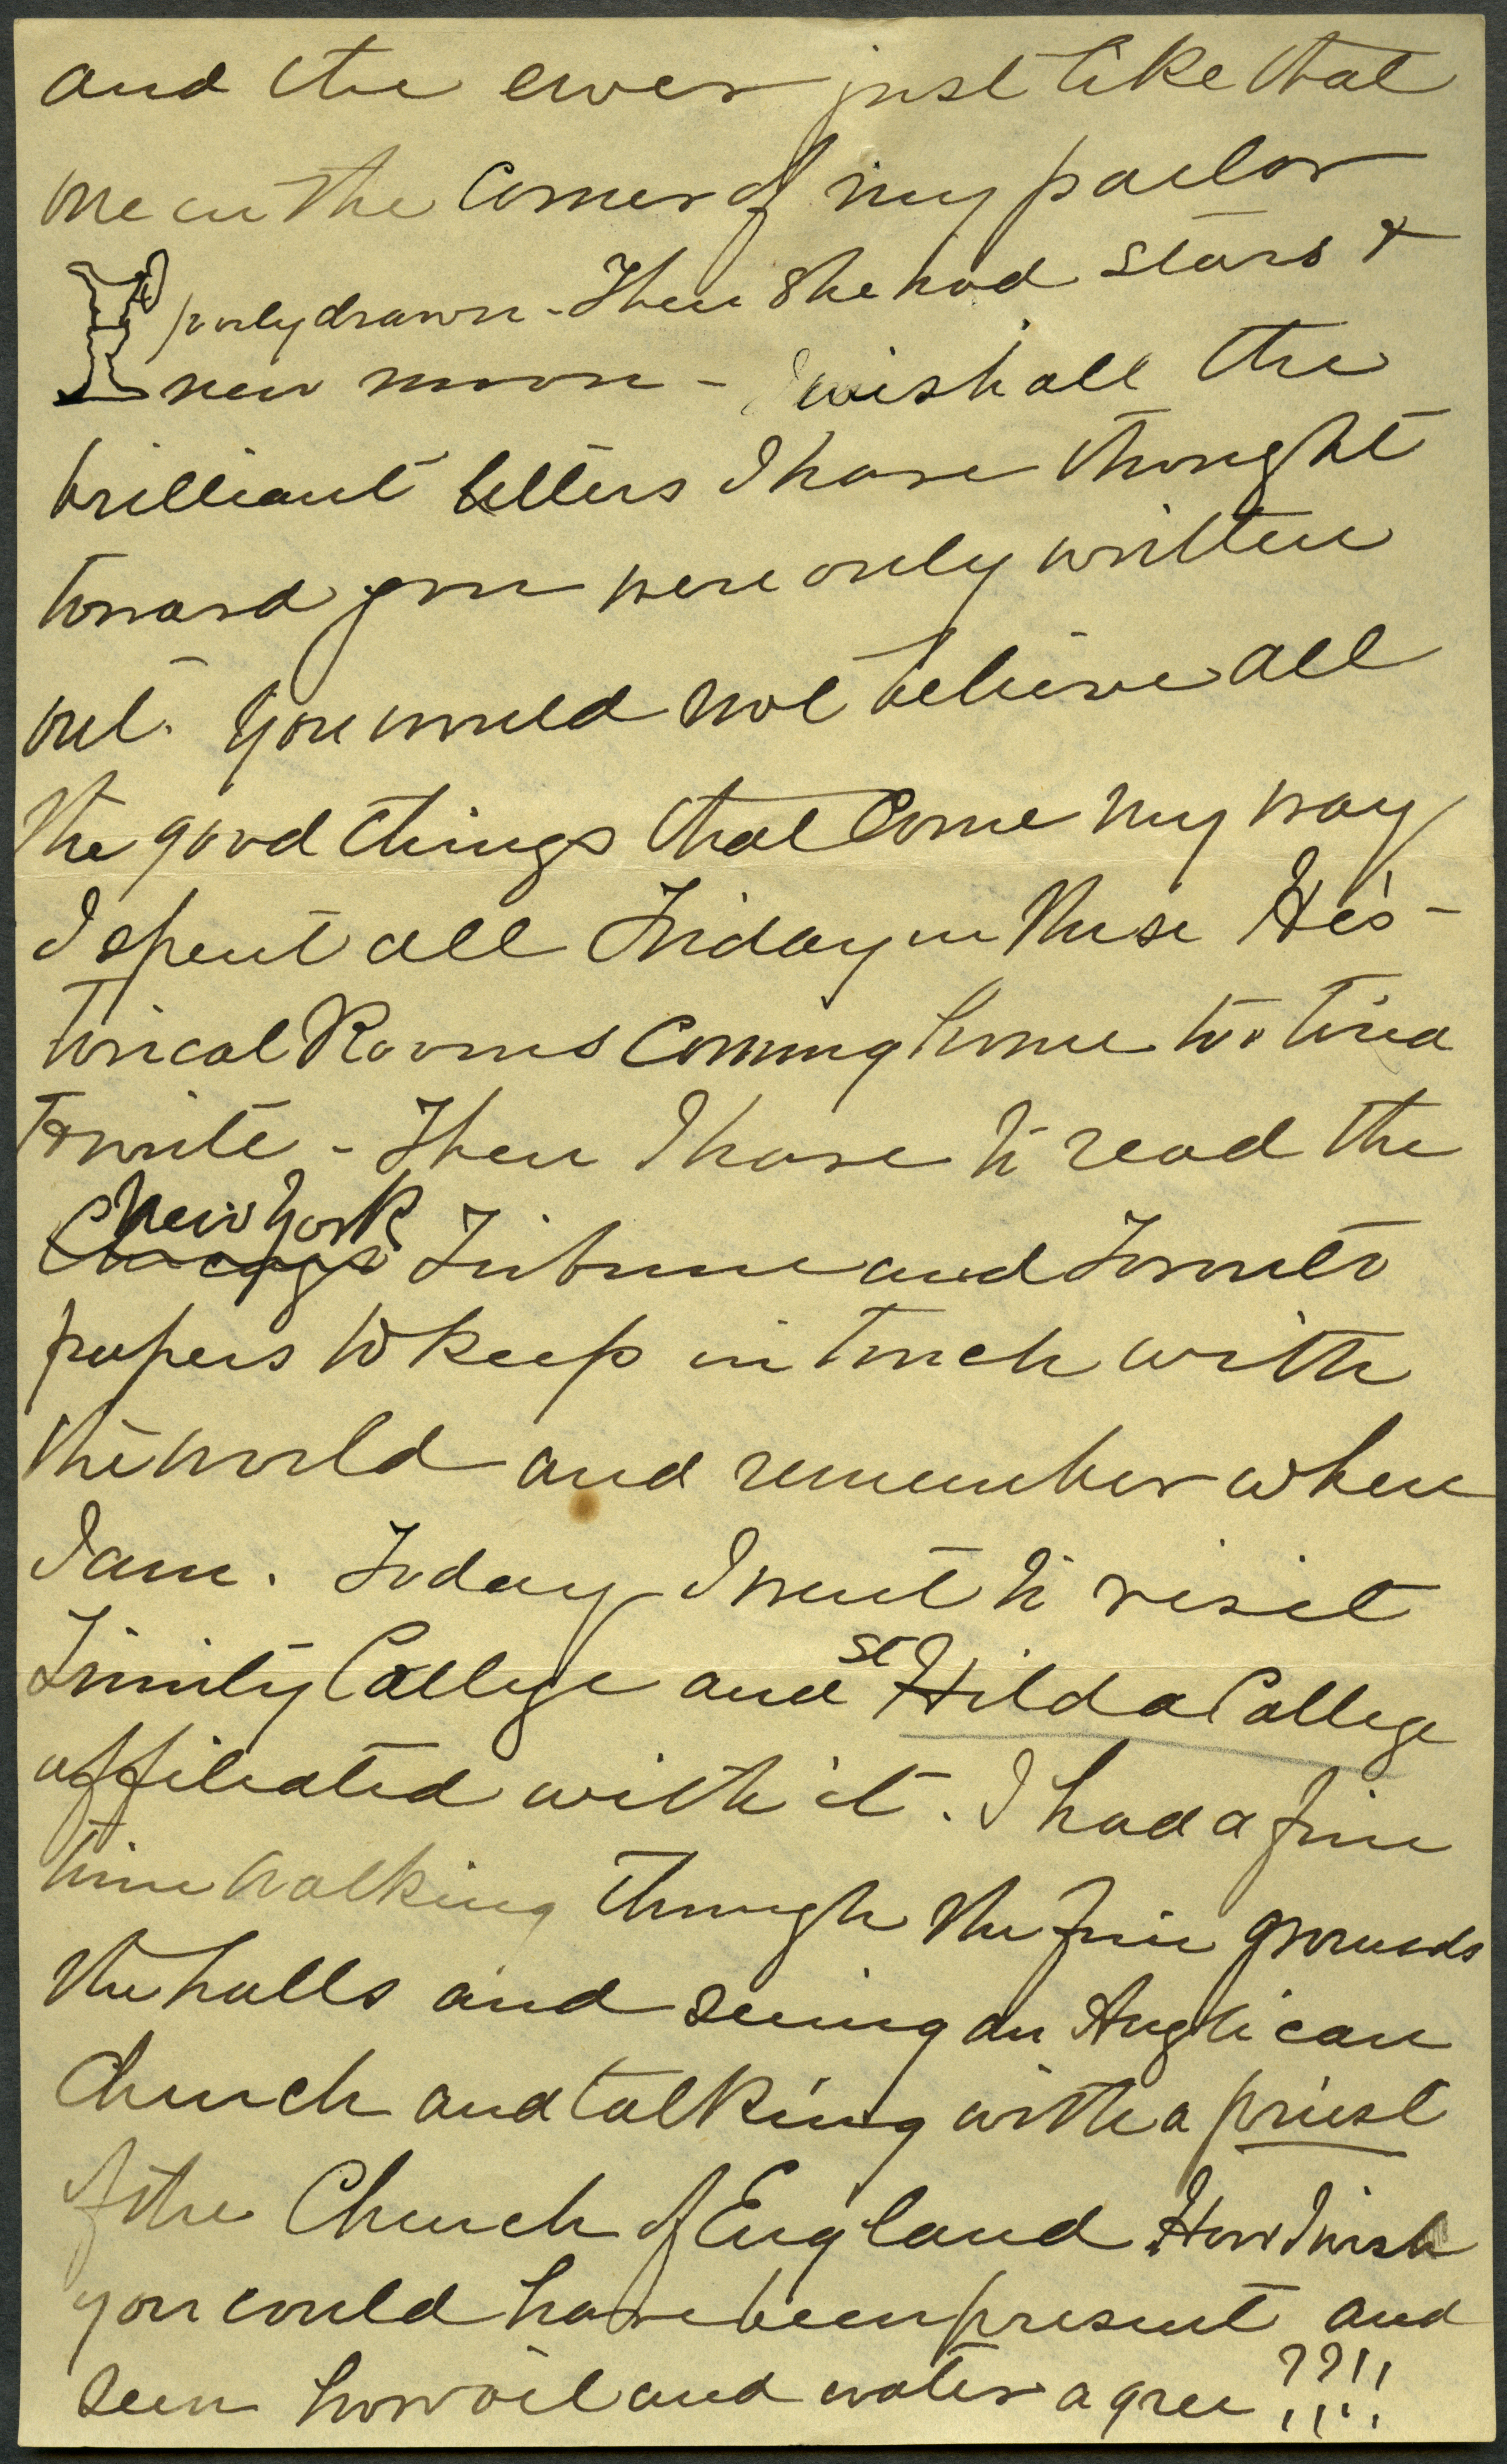 and the ewer just like that
one in the corner of my parlor
poorly drawn - Then she had stars &
new moon - I wish all the
brilliant letters I have thought
toward you were only written
out. You would not believe all
the good things that come my way
I spent all Friday in these His-
torical Rooms coming home too tired
to write - Then I have to read the
New York
Chicago Tribune and Toronto
papers to keep in touch with
the world and remember where
I am. Today I went to visit
Trinity College and St Hilda College
affiliated with it. I had a fine
time walking through the fine grounds
the halls and seeing an Anglican
Church and talking with a priest
of the Church of England. How I wish
you could have been present and
seen how oil and water agree??!!